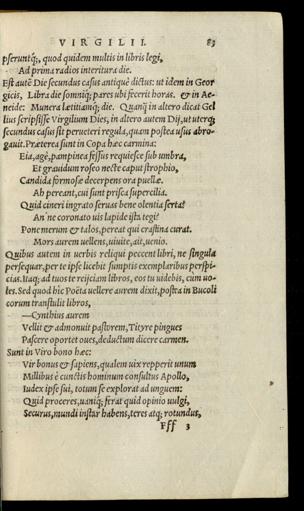 VIRGILII. 83
pserunt&#113;;, quod quidem multis in libris legi,
Ad prima radios interitura die.
Est autē Die secundus casus antiquè dictus: ut idem in Geor
gicis, Libra die somniq; pares ubi fecerit horas. & in Ae-
neide: Munera lætitiamq; die. Quanq̃ in altero dicat Gel
lius scripsisse Virgilium Dies, in altero autem Dij, ut uterq;
secundus casus sit perueteri regula, quam postea usus abro-
gauit. Præterea sunt in Copa hæc carmina:
Eia, agè, pampinea fessus requiesce sub umbra,
Et grauidum roseo necte caput strophio,
Candida formosæ decerpens ora puellæ.
Ah pereant, cui sunt prisca supercilia.
Quid cineri ingrato seruas bene olentia serta?
An'ne coronato uis lapide ista tegi?
Pone merum & talos, pereat qui crastina curat.
Mors aurem uellens, uiuite, ait, uenio.
Quibus autem in uerbis reliqui peccent libri, ne singula
persequar, per te ipse licebit sumptis exemplaribus perspi-
cias. Itaq; ad tuos te reijciam libros, eos tu uidebis, cum uo-
les. Sed quod hîc Poëta uellere aurem dixit, postra in Bucoli
corum transtulit libros,
—Cynthius aurem
Vellit & admonuit pastorem, Tityre pingues
Pascere oportet oues, deductum dicere carmen.
Sunt in Viro bono hæc:
Vir bonus & sapiens, qualem uix repperit unum
Millibus è cunctis hominum consultus Apollo,
Iudex ipse sui, totum se explorat ad unguem:
Quid proceres, uaniq; ferat quid opinio uulgi,
Securus, mundi instar habens, teres atq; rotundus,
Fff 3